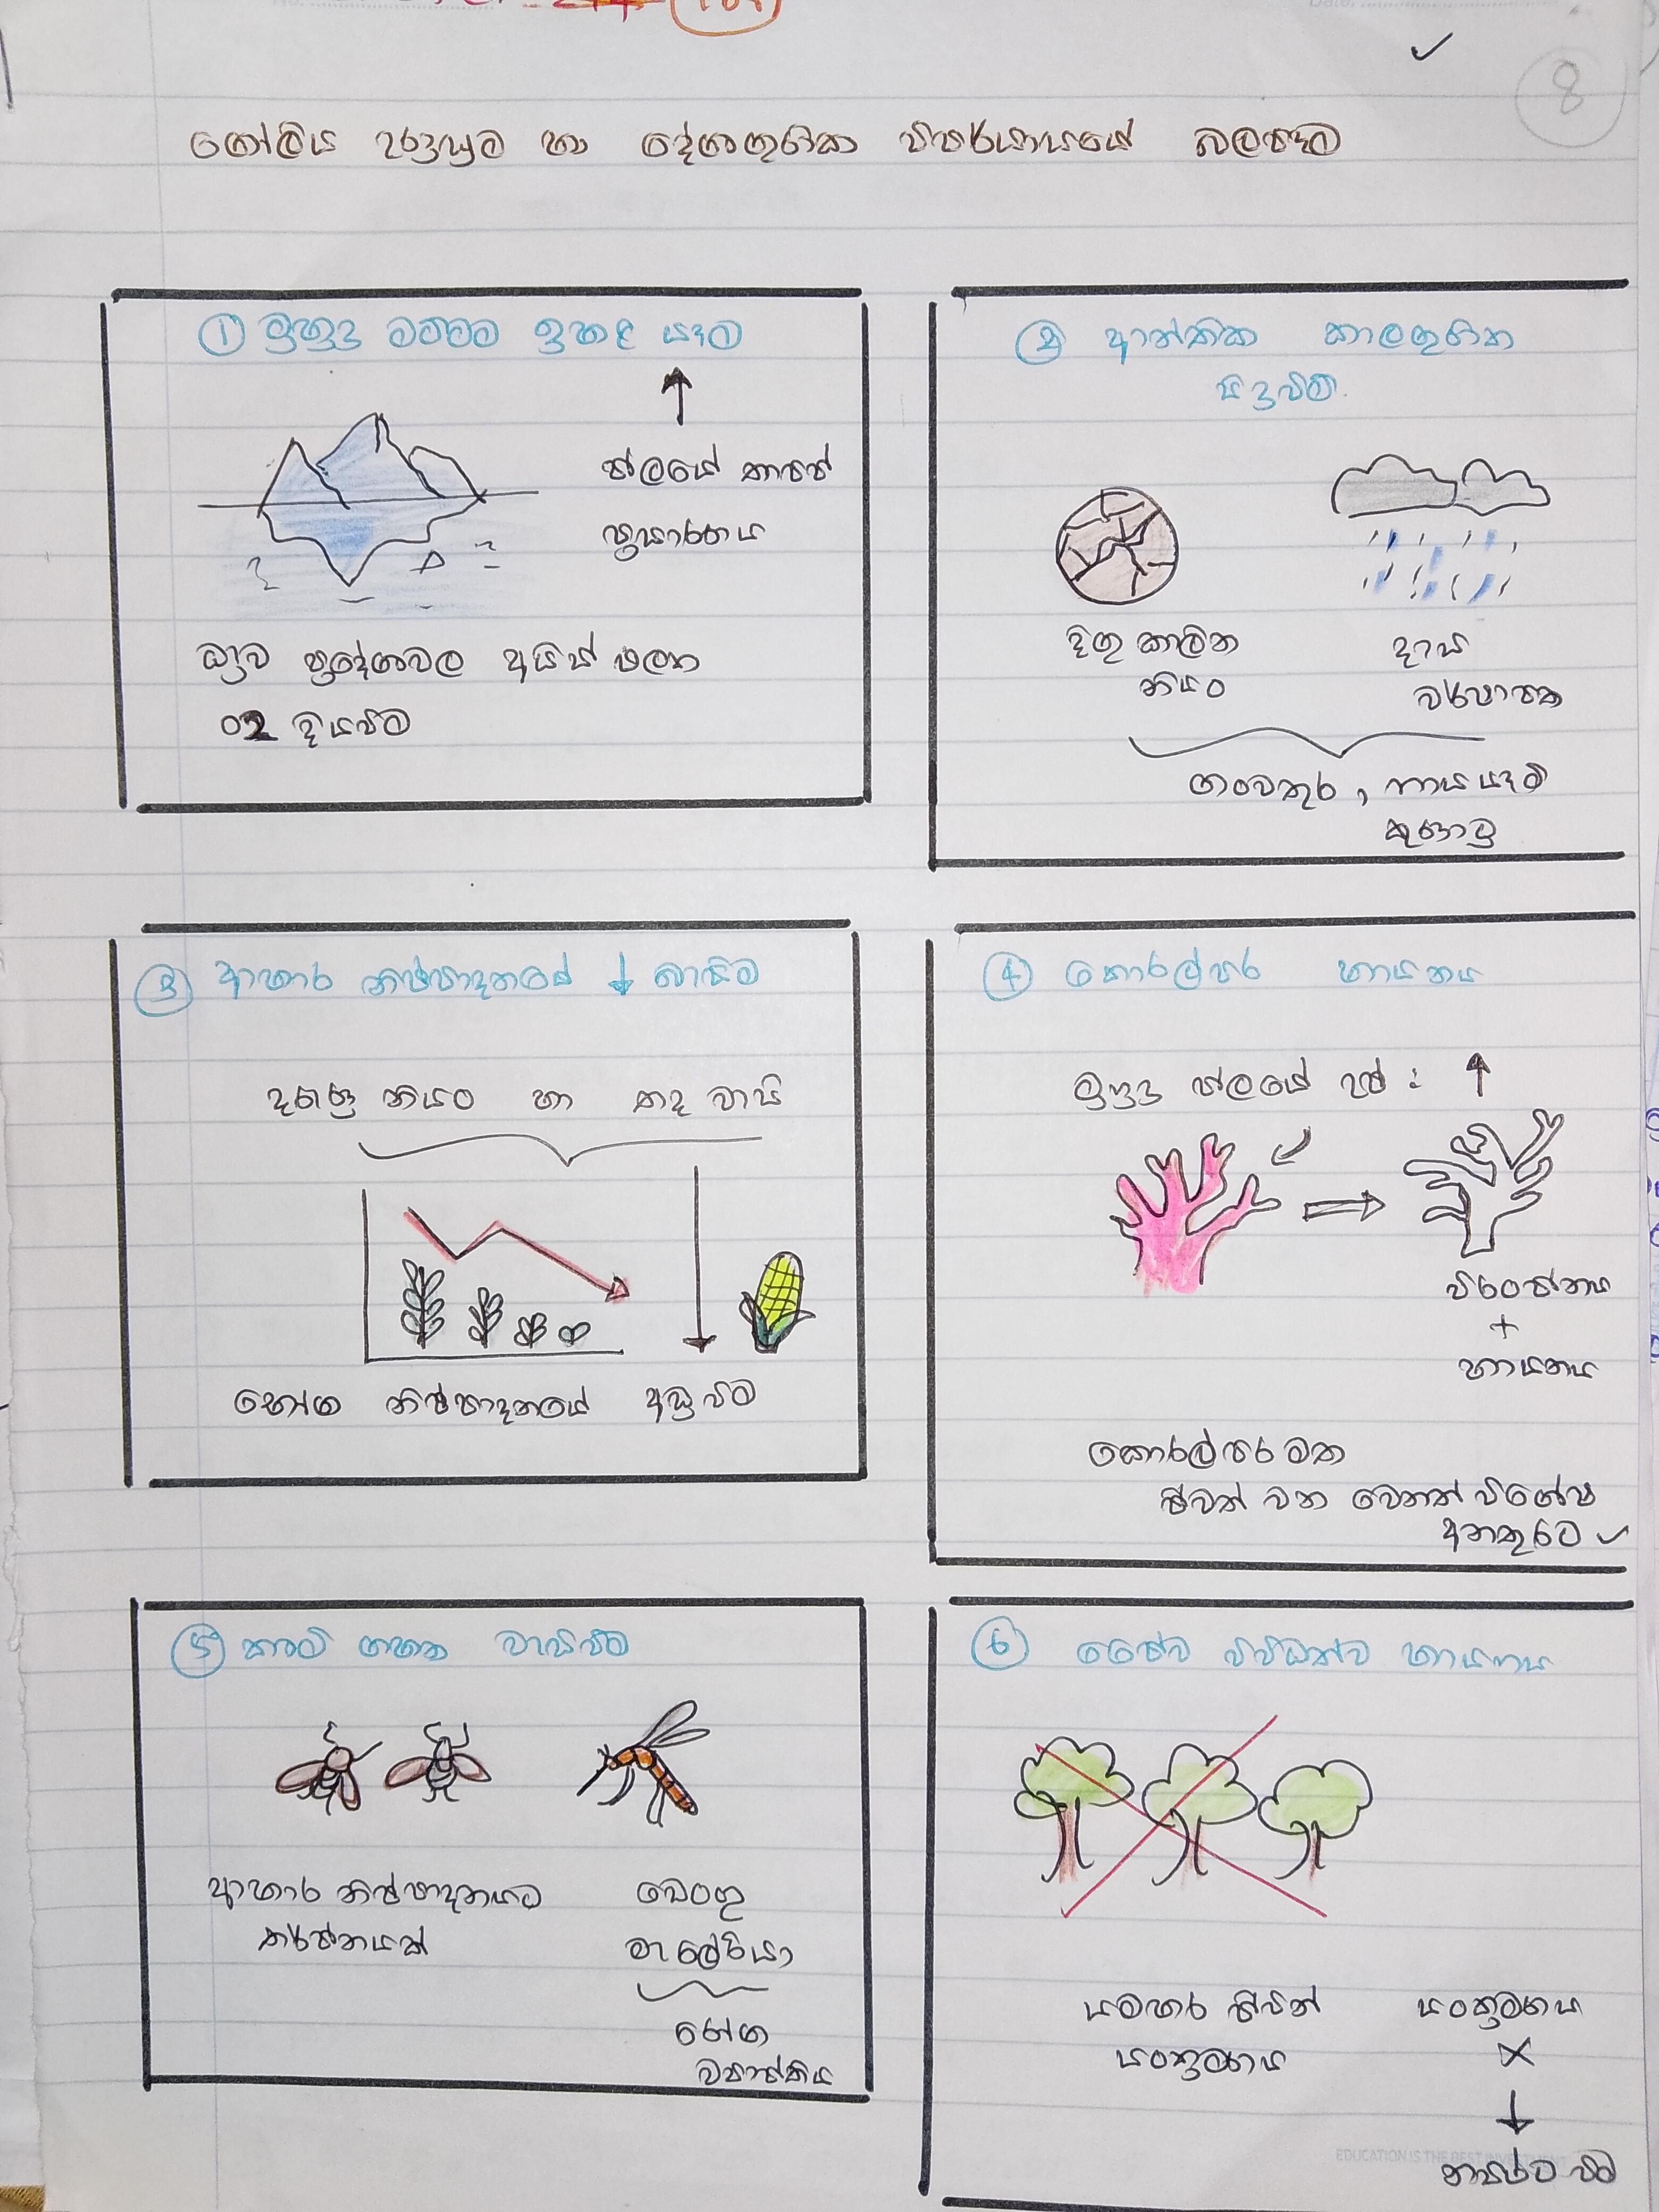 8
ගෝලීය උණුසුම හා දේශගුණික විපර්යාසයේ බලපෑම
① මුහුදු මට්ටම ඉහළ යෑම
ජලයේ තාපජ
ප්‍රසාරණය
ධ්‍රැව ප්‍රදේශවල අයිස් තලා
02 දියවීම
② ආන්තික කාලගුණික
සිදුවීම්
දිගු කාලීන
නියං
දැඩි
වර්ෂාපත
ගංවතුර , නායයෑම්
කුණාටු
③ ආහාර නිෂ්පාදනයේ ↓ බැසීම
දරුණු නියං හා තද වැසි
භෝග නිෂ්පාදනයේ අඩුවීම
④ කොරල්පර හායනය
මුහුදු ජලයේ උෂ් : ↑
විරංජනය
+
හායනය
කොරල්පර මත
ජීවත් වන වෙනත් විශේෂ
අනතුරට ✓
⑤ කෘමි ගහන වැඩිවීම
ආහාර නිෂ්පාදනයට
තර්ජනයක්
ඩෙංගු
මැලේරියා
රෝග
ව්‍යාප්තිය
⑥ ජෛව විවිධත්ව හායනය
සමහර ජීවීන්
සංක්‍රමණය
සංක්‍රමණය
×
↓
නෂ්ට වීම
EDUCATION IS THE BEST INVESTMENT